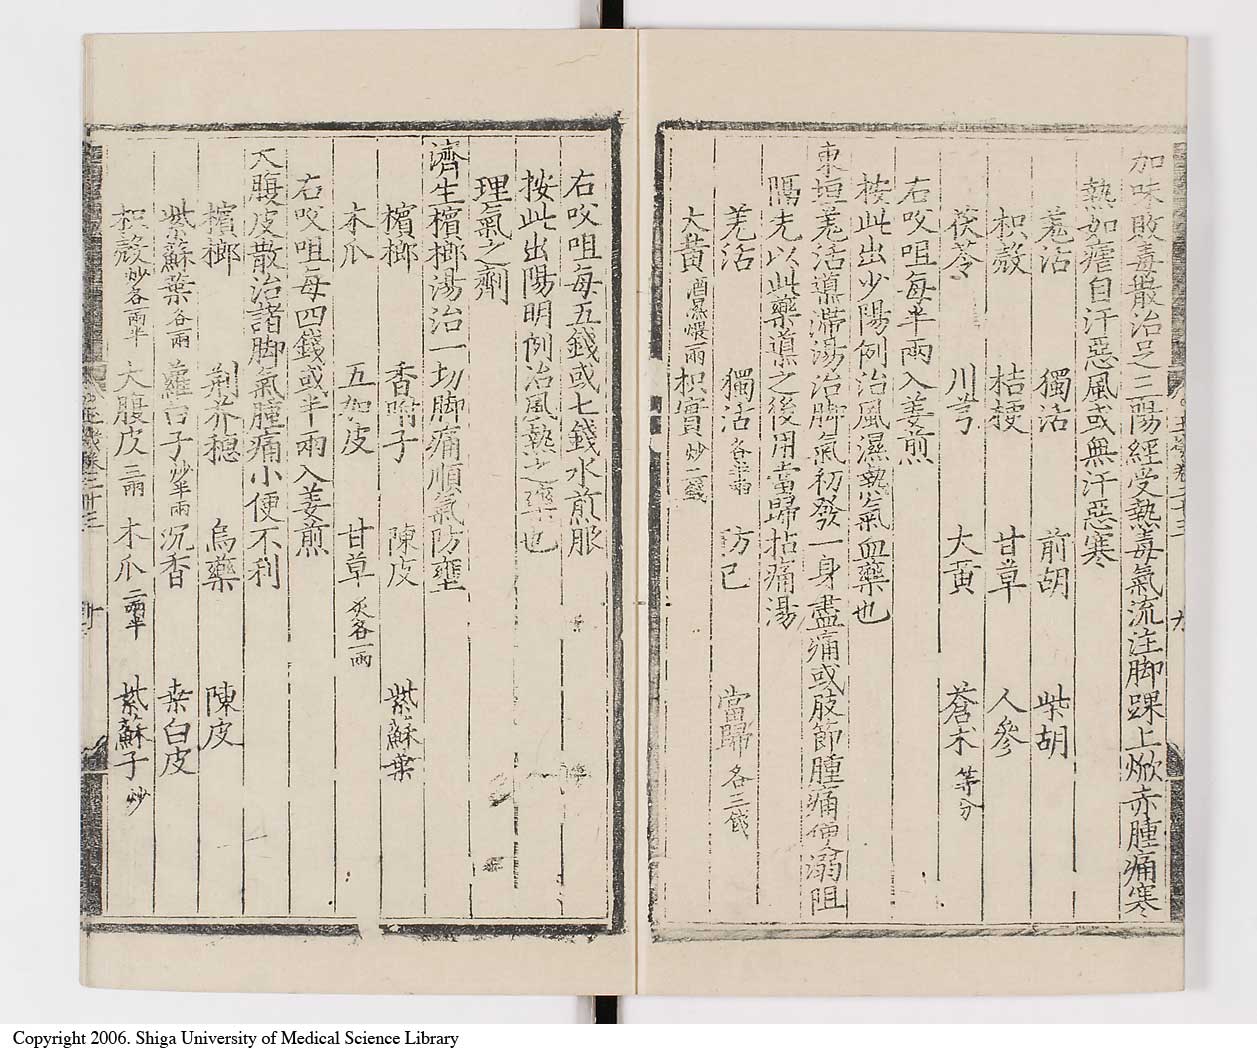 加味敗毒散治足三陽經受熱毒氣流注脚踝上焮赤腫痛寒
熱如瘧自汗惡風或無汗惡寒
羌活 獨活 前胡 柴胡
枳殼 桔梗 甘草 人參
茯苓 川芎 大黄 蒼朮 等分
右㕮咀每半兩入姜煎
按此出少陽例治風濕熱氣血藥也
東垣羌活導滯湯治脚氣初發一身盡痛或肢節腫痛便溺阻
隔先以此藥導之後用當歸拈痛湯
羌活 獨活 各半兩 防己 當歸 各三錢
大黄 酒濕煨一兩 枳實 炒二錢
右㕮咀每五錢或七錢水煎服
按此出陽明例治風熱之藥也
理氣之劑
濟生檳榔湯治一切脚痛順氣防壅
檳榔 香附子 陳皮 紫蘇葉
木瓜 五加皮 甘草 炙各一兩
右㕮咀每四錢或半兩入姜煎
大腹皮散治諸脚氣腫痛小便不利
檳榔 荆芥穗 烏藥 陳皮
紫蘇葉 各一兩 蘿蔔子 炒半兩 沉香 桑白皮
枳殼 炒各兩半 大腹皮 三兩 木瓜 二兩半 紫蘇子 炒
Copyright 2006. Shiga University of Medical Science Library